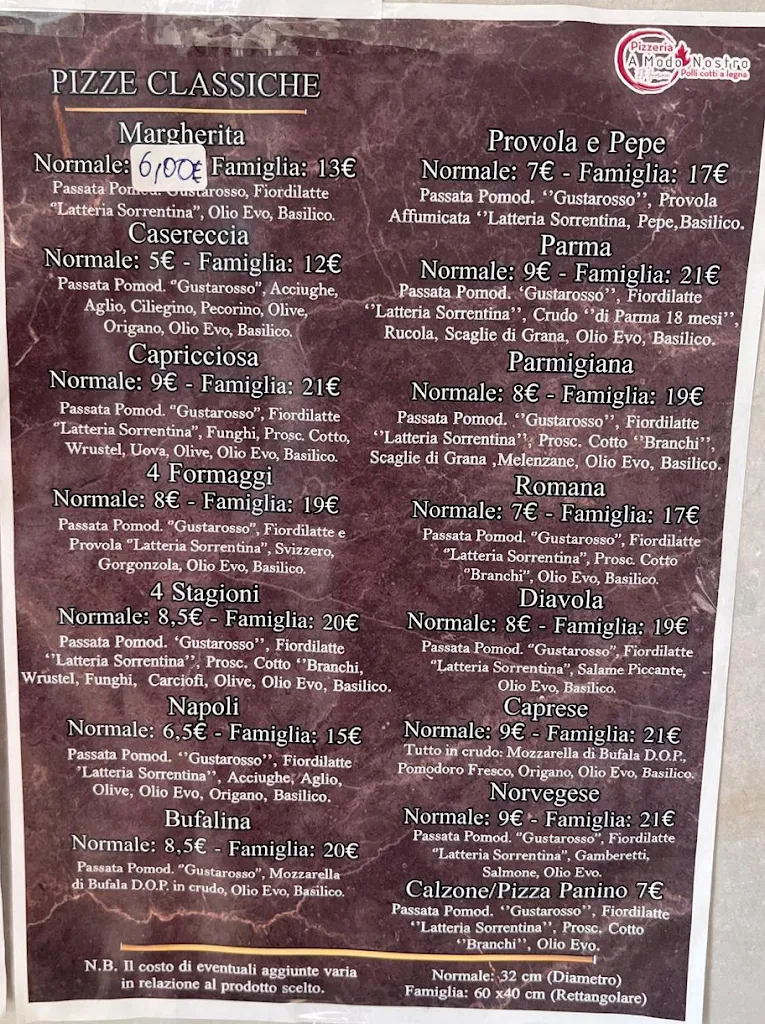 Pizzeria
A Modo Nostro
Polli cotti a legna
PIZZE CLASSICHE
Margherita
Normale: 6,00€ Famiglia: 13€
Passata Gustarosso, Fiordilatte
“Latteria Sorrentina”, Olio Evo, Basilico.
Casereccia
Normale: 5€ - Famiglia: 12€
Passata Pomod. “Gustarosso”, Acciughe,
Aglio, Ciliegino, Pecorino, Olive,
Origano, Olio Evo, Basilico.
Capricciosa
Normale: 9€ - Famiglia: 21€
Passata Pomod. “Gustarosso”, Fiordilatte
“Latteria Sorrentina”, Funghi, Prosc. Cotto,
Wrustel, Uova, Olive, Olio Evo, Basilico.
4 Formaggi
Normale: 8€ - Famiglia: 19€
Passata Pomod. “Gustarosso”, Fiordilatte e
Provola “Latteria Sorrentina”, Svizzero,
Gorgonzola, Olio Evo, Basilico.
4 Stagioni
Normale: 8,5€ - Famiglia: 20€
Passata Pomod. ‘Gustarosso’’, Fiordilatte
‘‘Latteria Sorrentina’’, Prosc. Cotto ‘’Branchi,
Wrustel, Funghi, Carciofi, Olive, Olio Evo, Basilico.
Napoli
Normale: 6,5€ - Famiglia: 15€
Passata Pomod. ‘‘Gustarosso’’, Fiordilatte
’Latteria Sorrentina’’, Acciughe, Aglio,
Olive, Olio Evo, Origano, Basilico.
Bufalina
Normale: 8,5€ - Famiglia: 20€
Passata Pomod. “Gustarosso”, Mozzarella
di Bufala D.O.P. in crudo, Olio Evo, Basilico.
Provola e Pepe
Normale: 7€ - Famiglia: 17€
Passata Pomod. ‘’Gustarosso’’, Provola
Affumicata ‘’Latteria Sorrentina, Pepe,Basilico.
Parma
Normale: 9€ - Famiglia: 21€
Passata Pomod. ‘Gustarosso’’, Fiordilatte
‘’Latteria Sorrentina’’, Crudo ‘’di Parma 18 mesi’’,
Rucola, Scaglie di Grana, Olio Evo, Basilico.
Parmigiana
Normale: 8€ - Famiglia: 19€
Passata Pomod. ‘’Gustarosso’’, Fiordilatte
‘’Latteria Sorrentina’’, Prosc. Cotto ‘’Branchi’’,
Scaglie di Grana ,Melenzane, Olio Evo, Basilico.
Romana
Normale: 7€ - Famiglia: 17€
Passata Pomod. “Gustarosso”, Fiordilatte
‘’Latteria Sorrentina”, Prosc. Cotto
“Branchi”, Olio Evo, Basilico.
Diavola
Normale: 8€ - Famiglia: 19€
Passata Pomod. “Gustarosso”,Fiordilatte
“Latteria Sorrentina”, Salame Piccante,
Olio Evo, Basilico.
Caprese
Normale: 9€ - Famiglia: 21€
Tutto in crudo: Mozzarella di Bufala D.O.P.,
Pomodoro Fresco, Origano, Olio Evo, Basilico.
Norvegese
Normale: 9€ - Famiglia: 21€
Passata Pomod. “Gustarosso”, Fiordilatte
“Latteria Sorrentina”, Gamberetti,
Salmone, Olio Evo.
Calzone/Pizza Panino 7€
Passata Pomod. ‘’Gustarosso’’, Fiordilatte
‘’Latteria Sorrentina’’, Prosc. Cotto
‘’Branchi’’, Olio Evo.
N.B. Il costo di eventuali aggiunte varia
in relazione al prodotto scelto.
Normale: 32 cm (Diametro)
Famiglia: 60 x40 cm (Rettangolare)